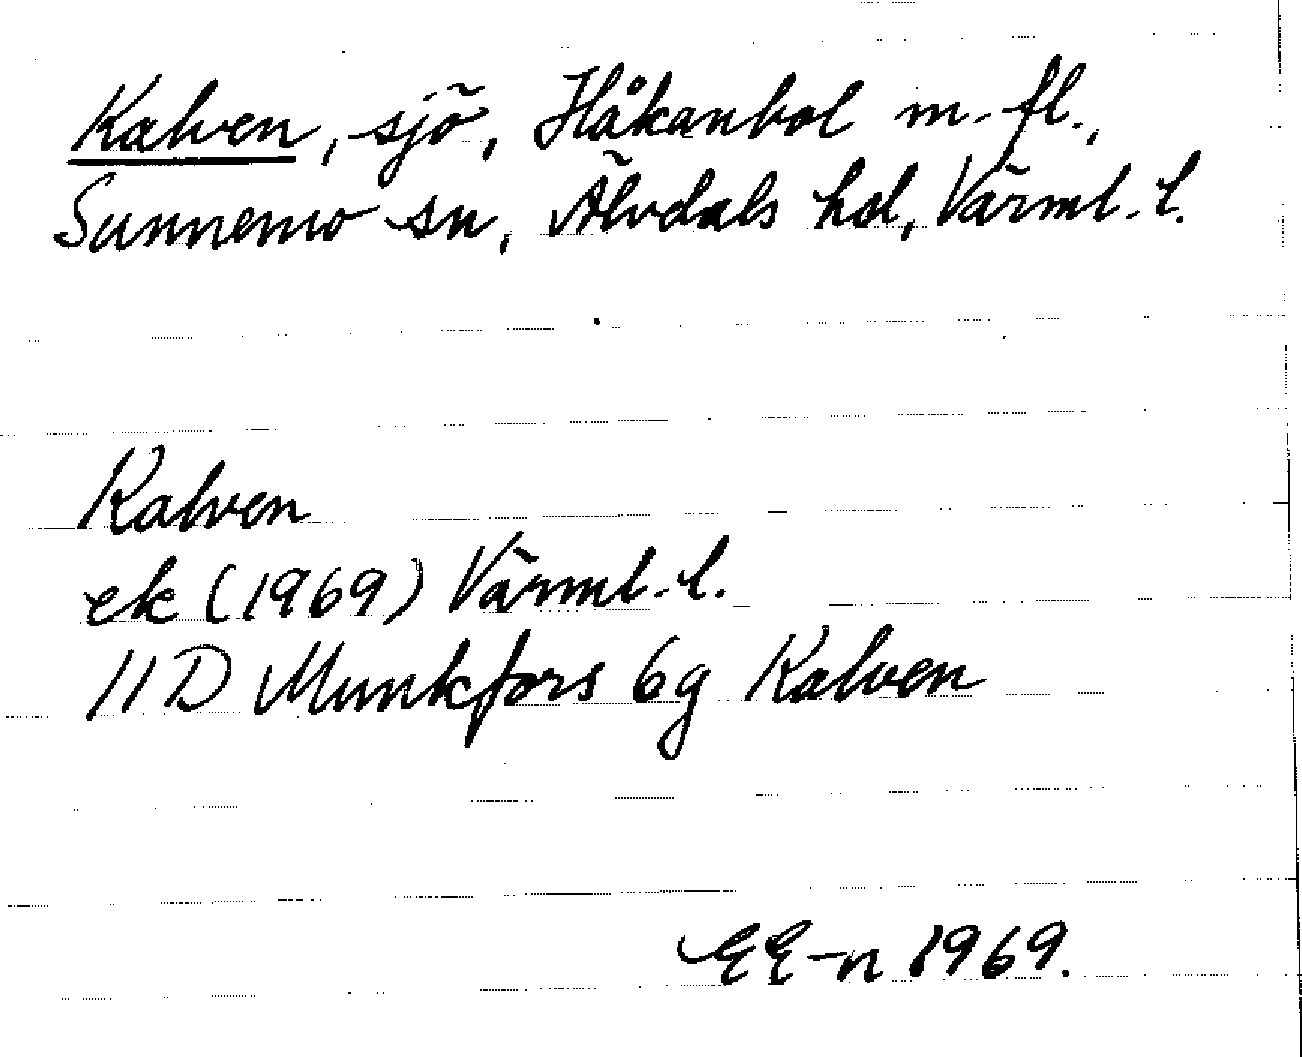 Kalven, sjö, Håkanbol m. fl.,
Sunnemo sn, Älvdals hd, Värml. l.
Kalven
ek (1969) Värml. l.
11 D Munkfors 6g Kalven
EE-n 1969.